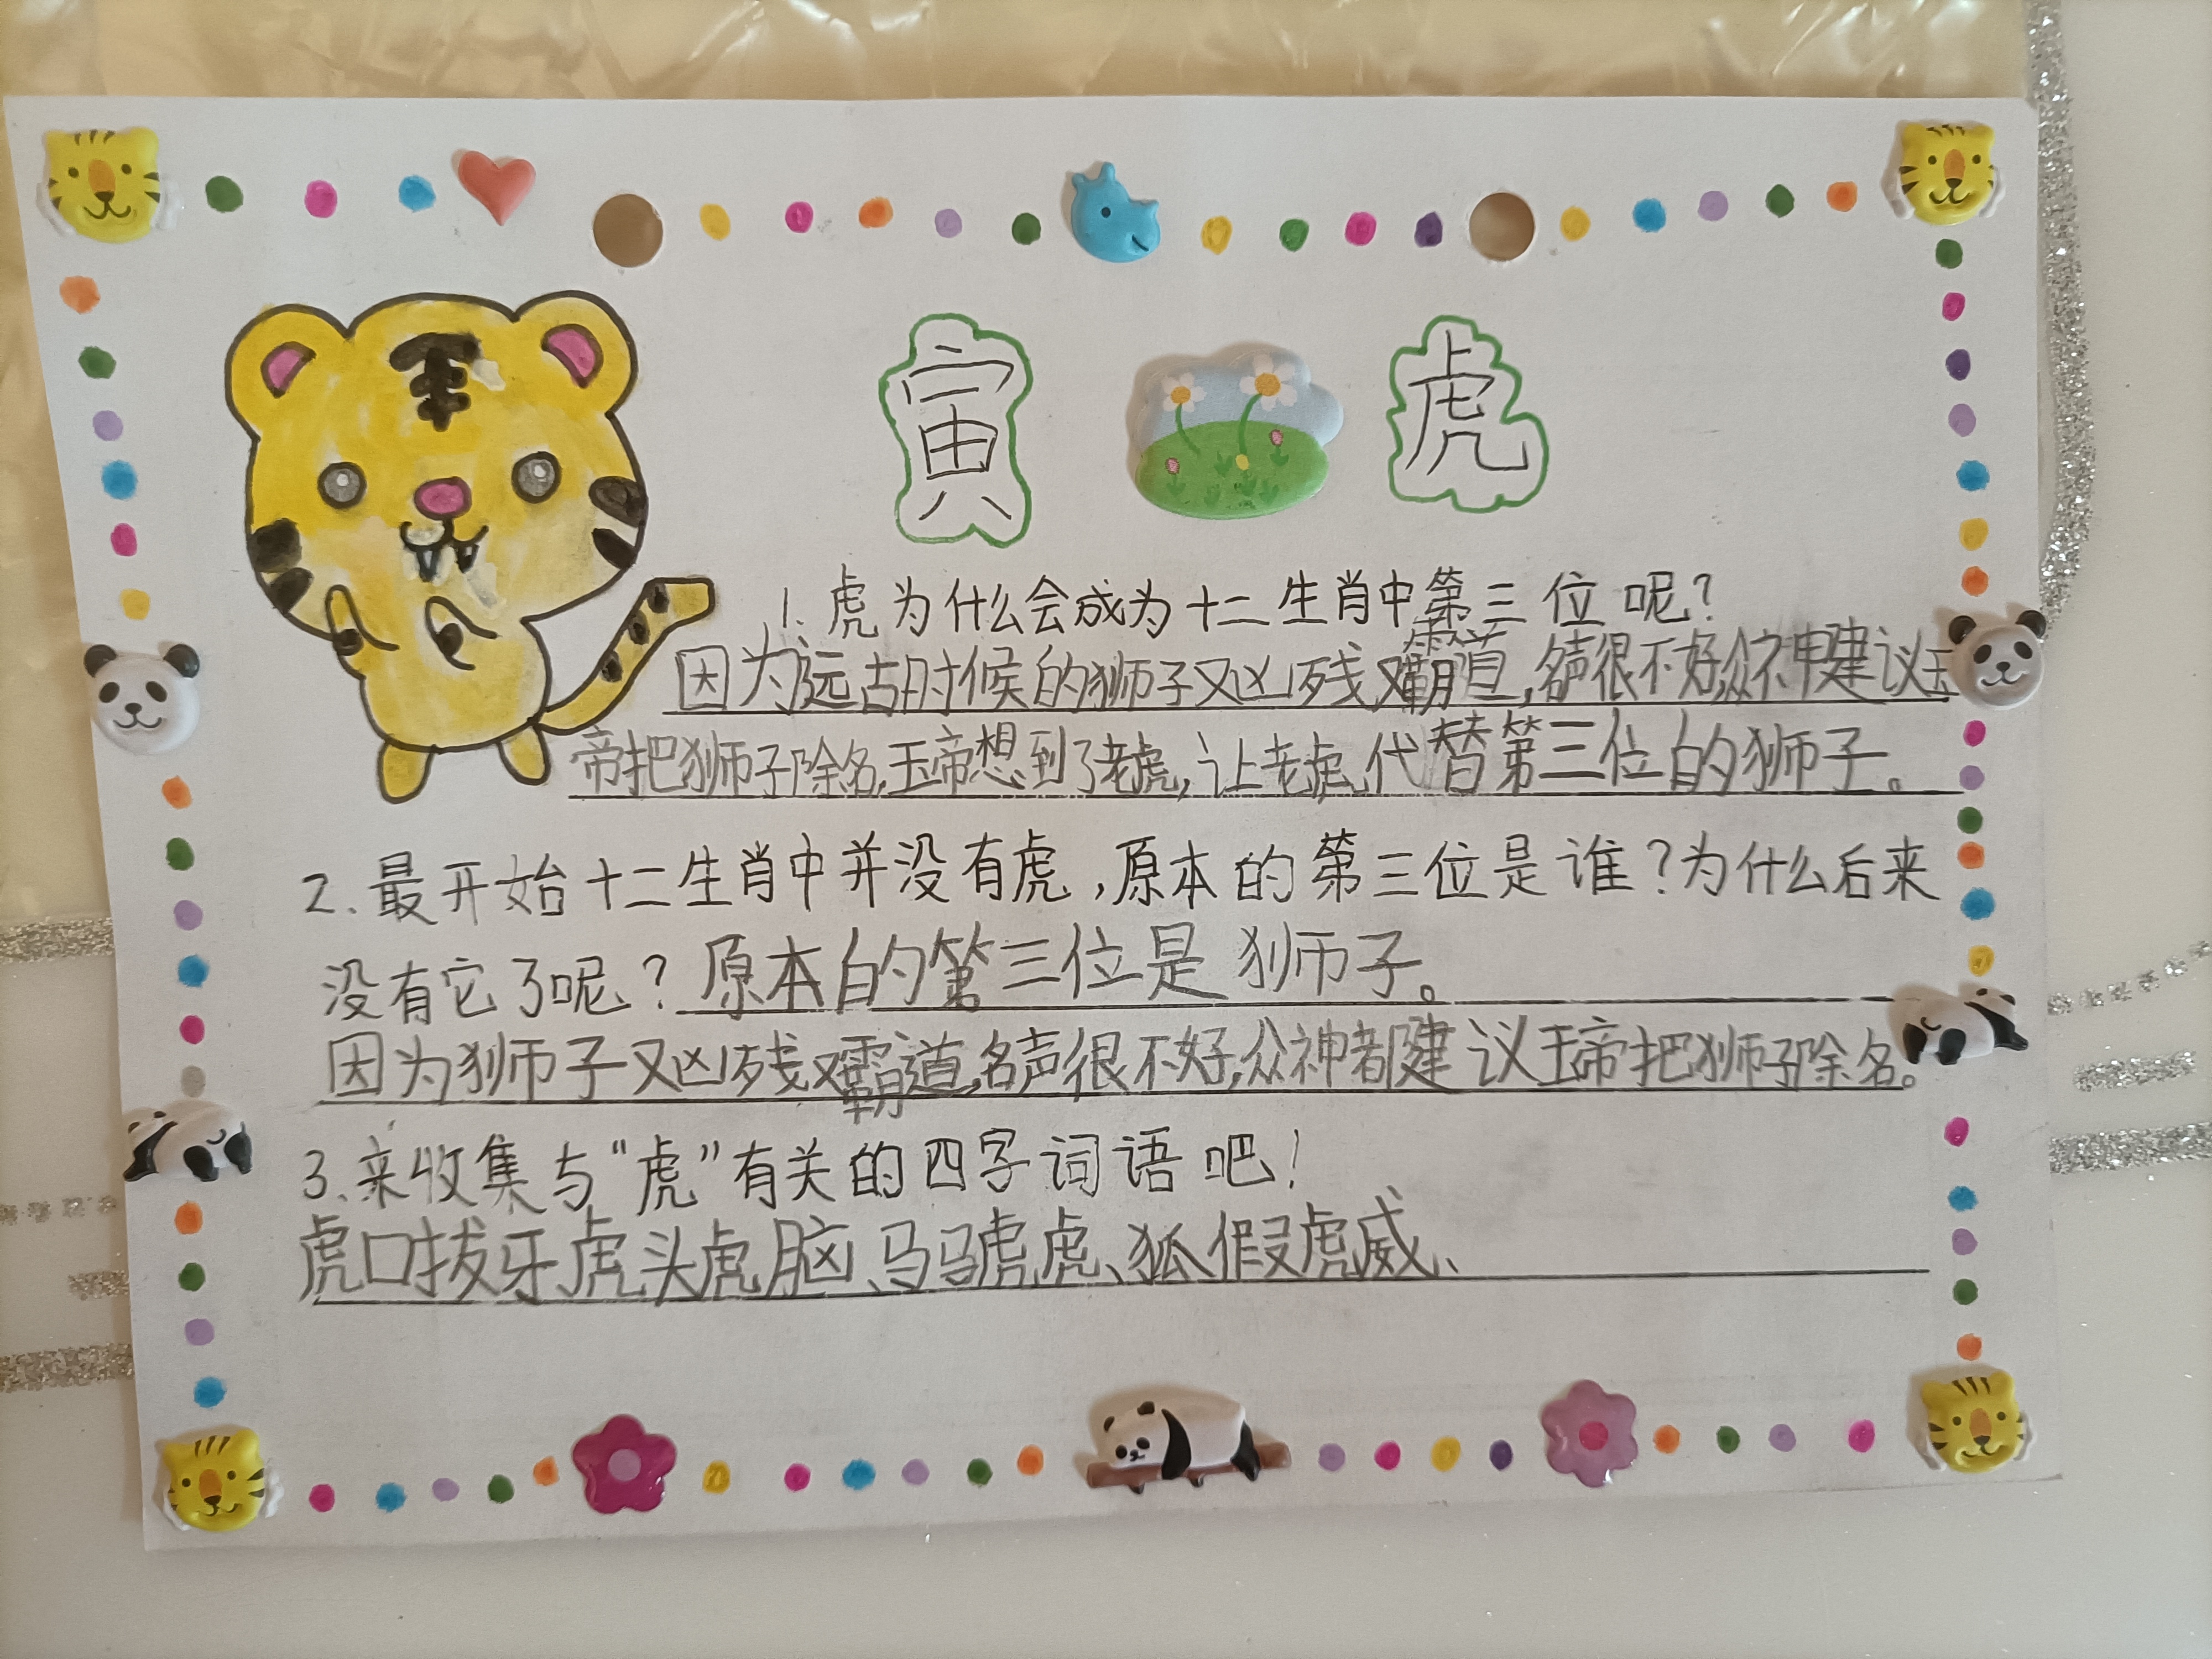 寅 虎
1.虎为什么会成为十二生肖中第三位呢?
因为远古时候的狮子又凶残又霸道,名声很不好,众神建议玉
帝把狮子除名,玉帝想到了老虎,让老虎代替第三位的狮子。
2.最开始十二生肖中并没有虎,原本的第三位是谁?为什么后来
没有它了呢?原本的第三位是狮子。
因为狮子又凶残又霸道,名声很不好,众神都建议玉帝把狮子除名。
3.来收集与“虎”有关的四字词语吧!
虎口拔牙、虎头虎脑、马马虎虎、狐假虎威、